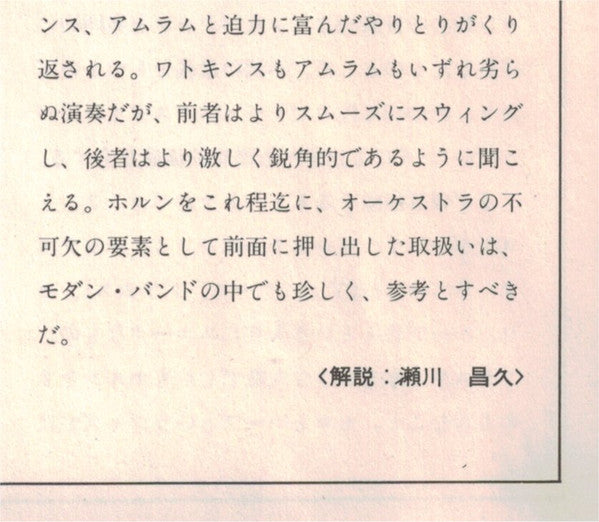 ンス、アムラムと迫力に富んだやりとりがくり
返される。ワトキンスもアムラムもいずれ劣ら
ぬ演奏だが、前者はよりスムーズにスウィング
し、後者はより激しく鋭角的であるように聞こ
える。ホルンをこれ程迄に、オーケストラの不
可欠の要素として前面に押し出した取扱いは、
モダン・バンドの中でも珍しく、参考とすべき
だ。
〈解説：瀬川　昌久〉